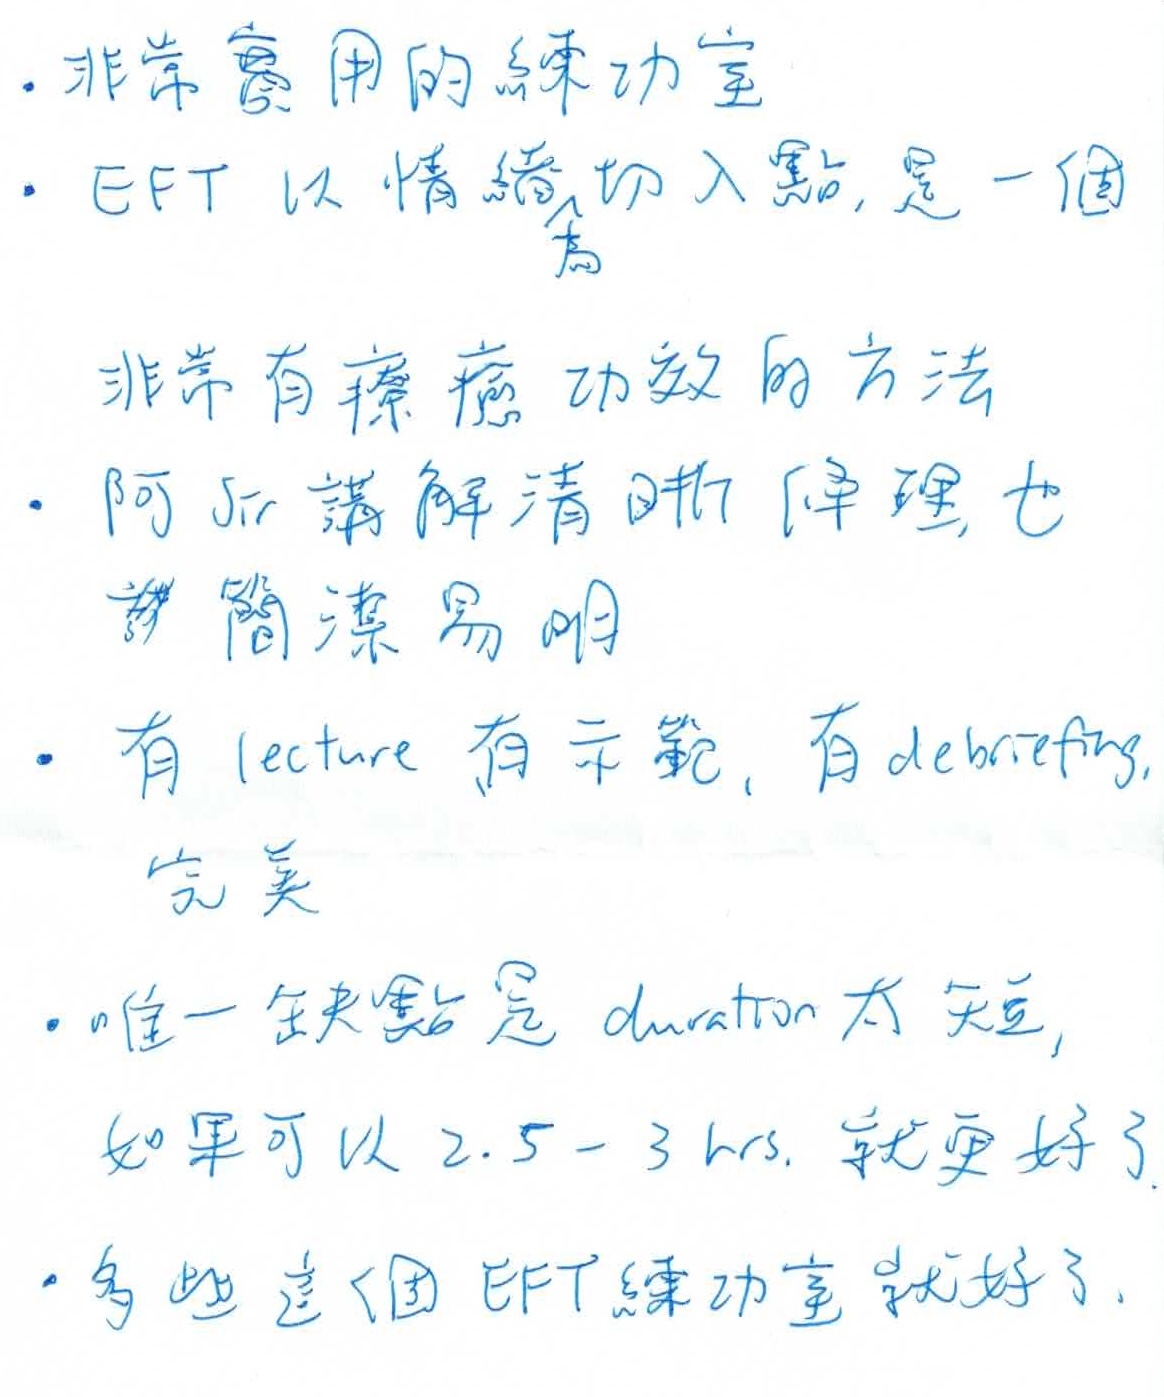 · 非常實用的練功室
· EFT 以情緒為切入點, 是一個
非常有療癒功效的方法
· 阿 Sir 講解清晰條理, 也
簡潔易明
· 有 lecture 有示範, 有 debriefing,
完美
· 唯一缺點是 duration 太短,
如果可以 2.5 - 3 hrs. 就更好了.
· 多些這個 EFT 練功室就好了.